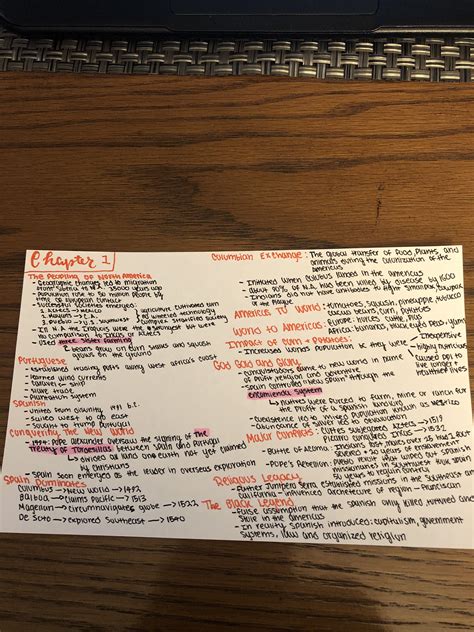 Chapter 1
The Peopling of North America
- Geographic changes led to migration
from Siberia to N.A. 35000 years ago
- Population rose to 50 million people by
time of European contact
- Successful societies emerged:
1. Aztecs → Mexico
2. Mayans → C.A.
3. Pueblo → U.S. Southwest
agriculture cultivated corn
technology
complex stratified societies
- In N.A. the Iroquois were the strongest but were
no comparison to Incas or Aztecs
- Used three sister farming
↳ beans grew on corn stalks and squash
grows on the ground
Portuguese
- Established trading posts along West Africa's coast
- learned wind currents
- caravel → ship
- slave trade
- plantation system
Spanish
- United from disunity
- sailed west to go east
- sought to end Portugal
Conquering the New World
- 1494: Pope Alexander oversaw the signing of the
Treaty of Tordesillas between Spain and Portugal
↳ divided up land on earth not yet claimed
by Christians
- Spain soon emerged as the leader in overseas exploration
Spain Dominates
Columbus → New World → 1492
Balboa → claims Pacific → 1513
Magellan → circumnavigates globe → 1522
De Soto → explored Southeast → 1540
Columbian Exchange: The global transfer of food, plants, and
animals during the colonization of the
Americas
- Initiated when Columbus landed in the Americas
- about 90% of N.A. had been killed by disease by 1600
- Indians did not have antibodies to fight smallpox,
or the plague
Americas to World: tomatoes, squash, pineapple, tobacco
cacao beans, corn, potatoes
World to Americas: Europe: horses, cattle, pigs
Africa: bananas, black eyed peas, yams
Impact of corn + potatoes:
- Increased world's population bc they were
inexpensive
highly nutritious
caused ppl to
live longer
healthier lives
God Gold and Glory
- Conquistadors came to new world in name
of profit, religion and
- Spain controlled New Spain through the
encomienda system
↳ natives were forced to farm, mine or ranch for
the profit of a Spanish landlord
- Coexistence led to mixed population known as Mexico
- abundance of silver led to devaluation
Major Conflicts: - Cortes conquered Aztecs → 1519
- Pizarro conquered Incas → 1532
- Battle of Acoma:
- Pope's Rebellion:
Religious Legacy
- Father Junipero Serra established missions in the southwest
California - influenced architecture of region - Franciscan
The Black Legend
- False assumption that the Spanish only killed, tortured and
stole in the Americas
- In reality Spanish introduced: capitalism, government
systems, law and organized religion